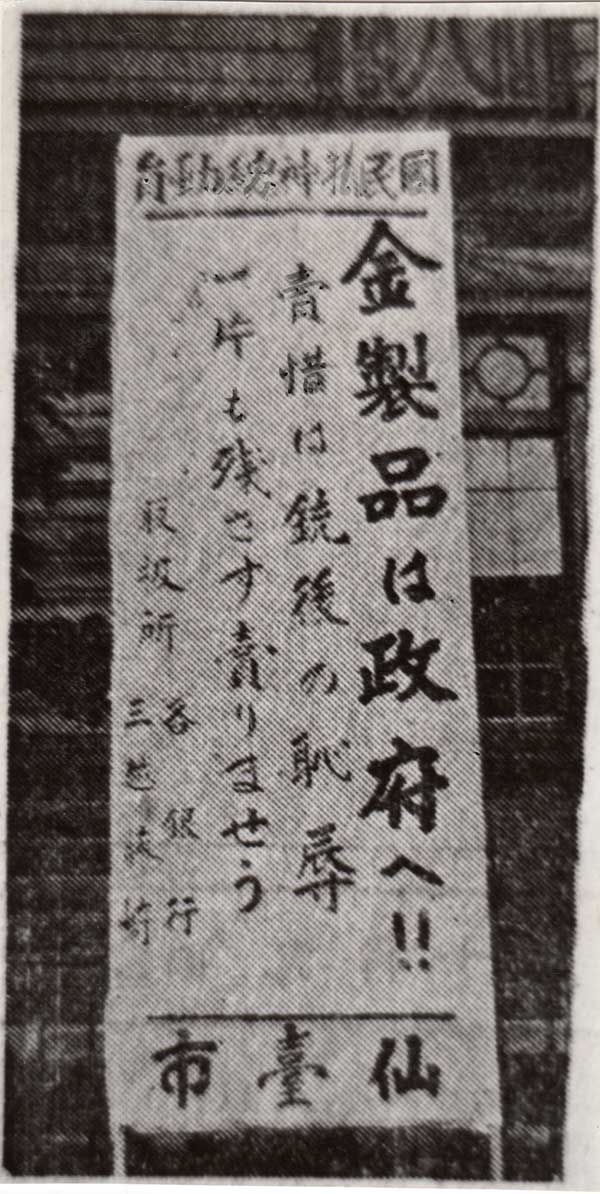 國民精神總動員
金製品は政府へ!!
賣惜は銃後の恥辱
一片も残さす賣りませう
取扱所
各銀行
三越
仙臺市